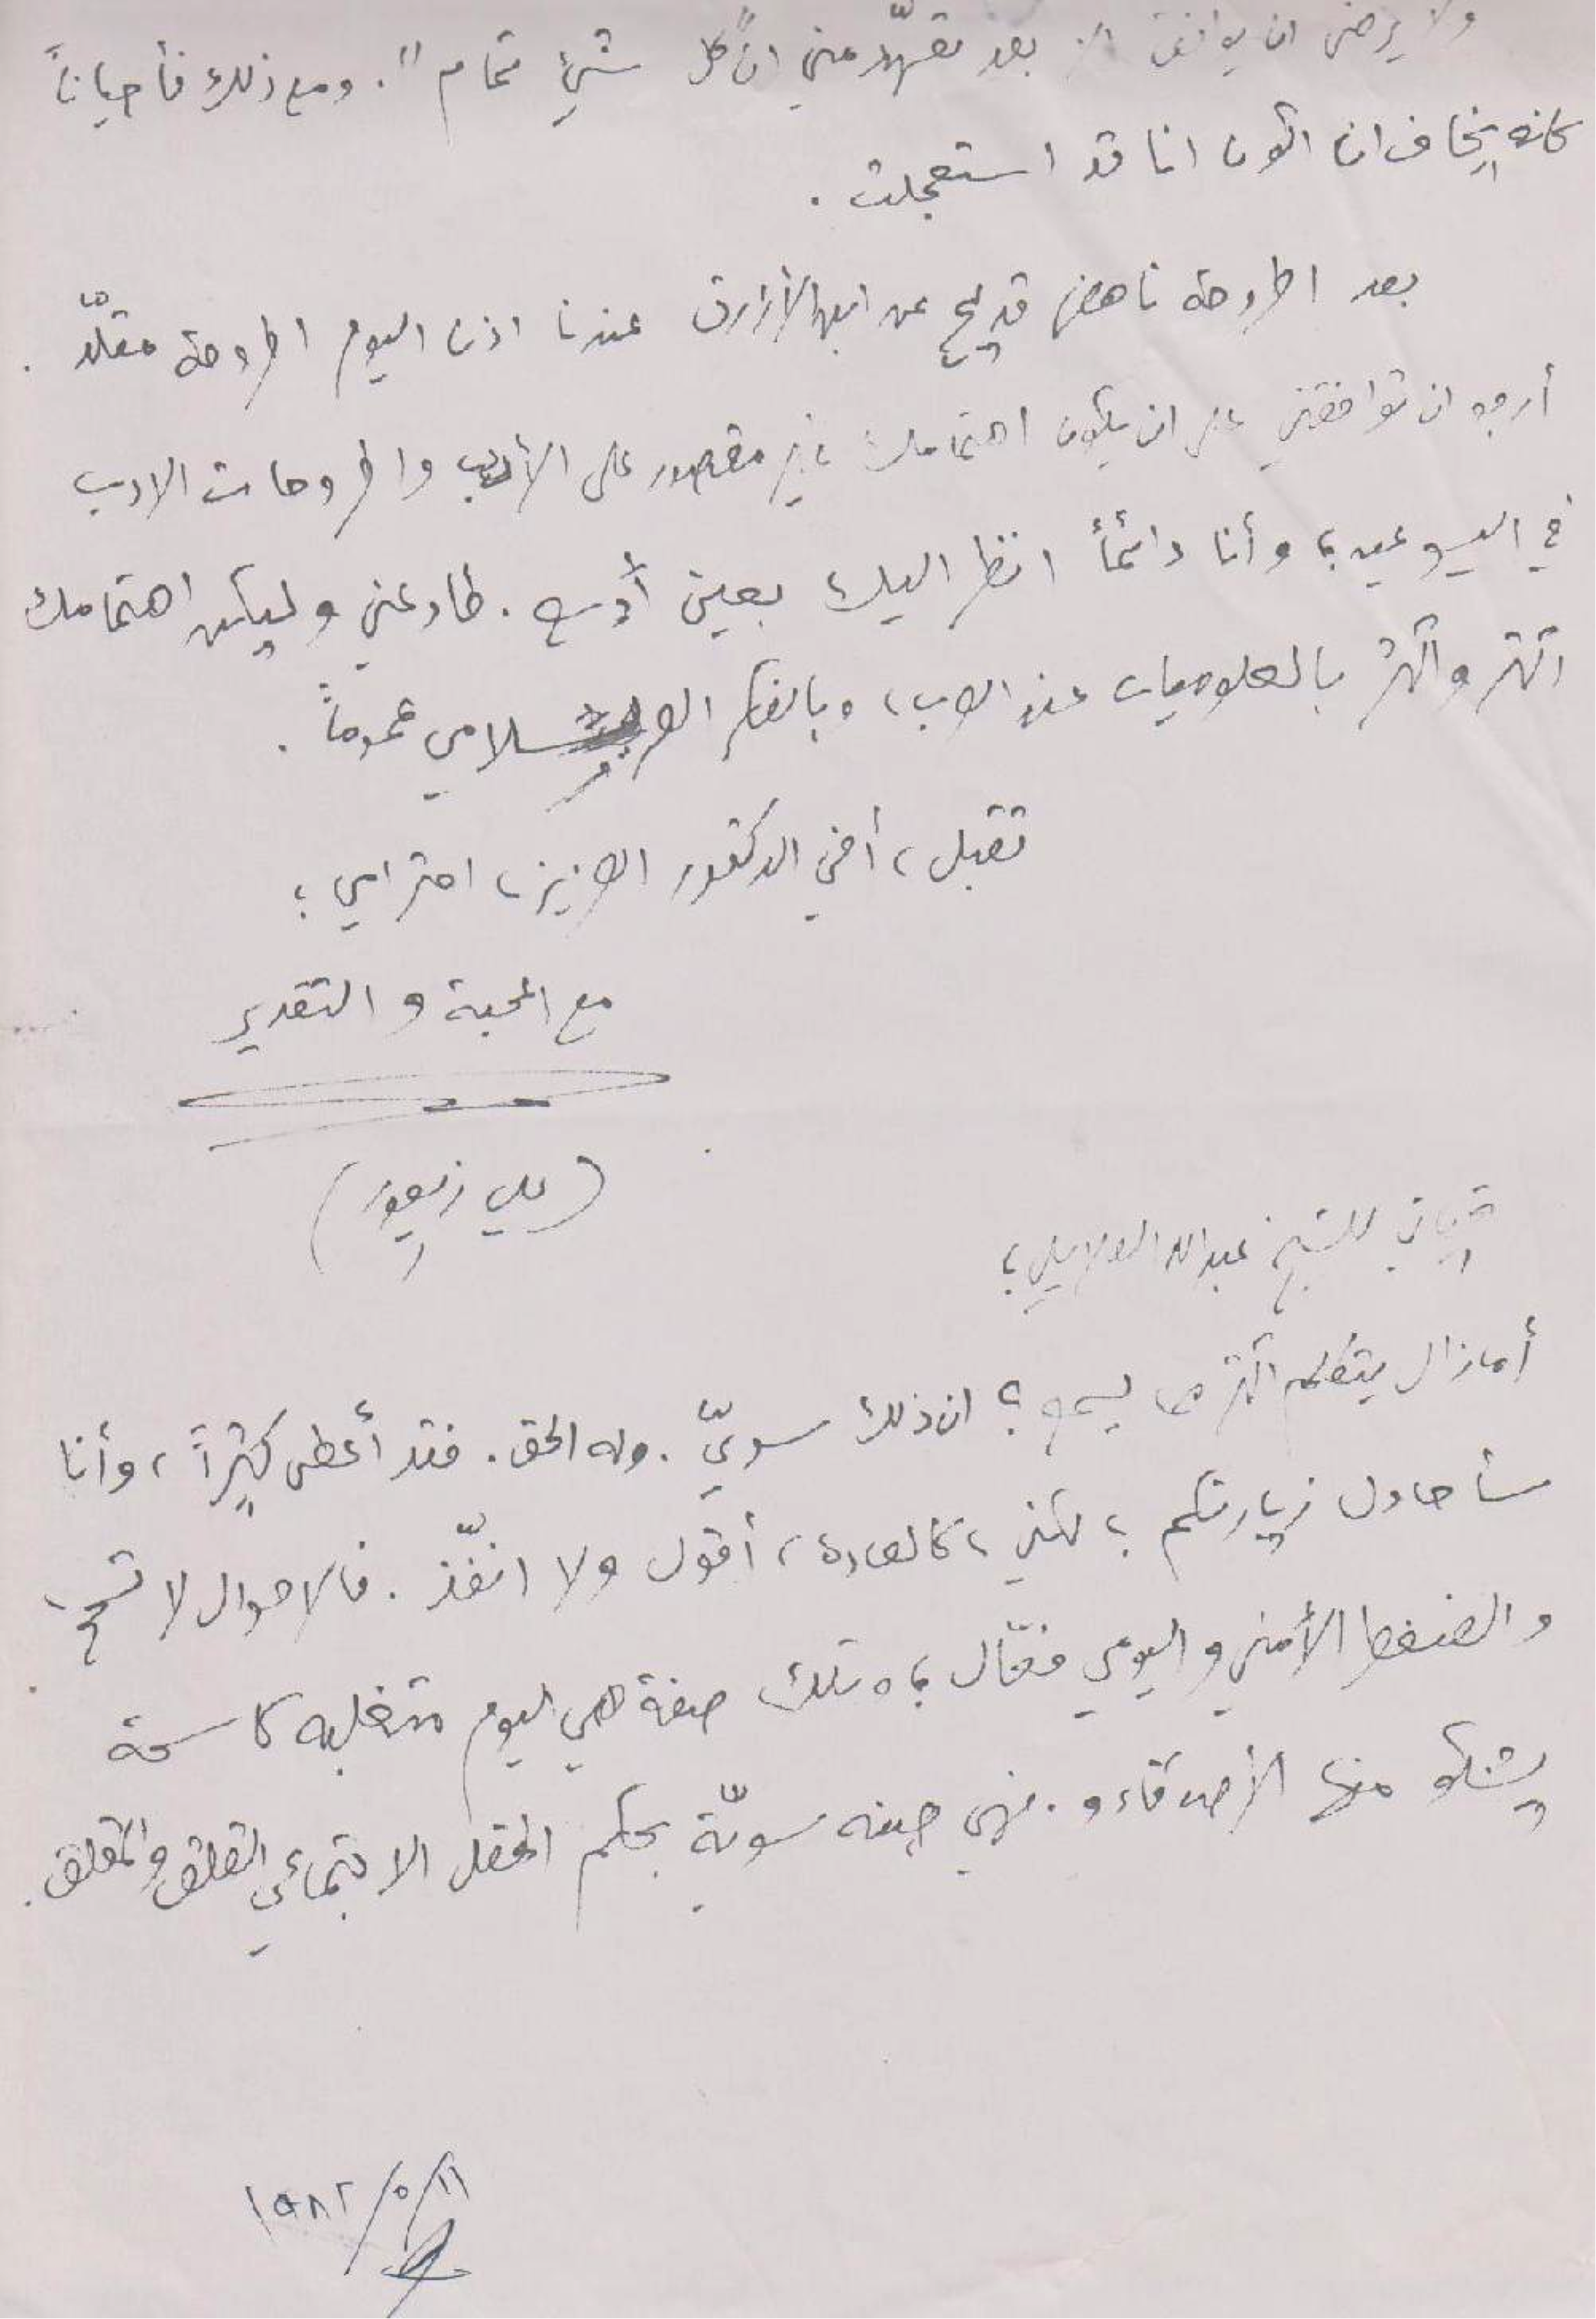 ولا يرضى ان يوافق الا بعد تعهّد مني انّ كل شيء تمام". ومع ذلك فأحياناً
كان يخاف ان اكون انا قد استعجلت.
بعد اطروحة ناهض قديح عن ابن الأزرق عندنا اذن اليوم اطروحة مقلّد.
أرجو ان توافقني على ان يكون اهتمامك غير مقصور على الأدب واطروحات الادب
في اليسوعية؛ وأنا دائماً انظر اليك بعين أوسع. طاوعني وليكن اهتمامك
اكثر واكثر بالعلوميات عند العرب، وبالفكر العربسلامي عموماً.
تقبل، أخي الدكتور العزيز، احترامي؛
مع المحبة والتقدير
(علي زيعور)
تحياتي للشيخ عبدالله العلايلي؛
أما زال يتكلم اكثر مما يسمع؟ ان ذلك سويّ. وله الحق. فقد أعطى كثيراً، وأنا
سأحاول زيارتكم؛ لكني، كالعادة، أقول ولا انفّذ. فالاحوال لا تسمح،
والضغط الأمني واليومي فعّال؛ وتلك صفة هي اليوم متغلبه كاسحة
يشكو منها الأصدقاء و. فهي صفه سويّة بحكم الحقل الاجتماعي القلق والمقلق.
١٩٨٢/٥/١١